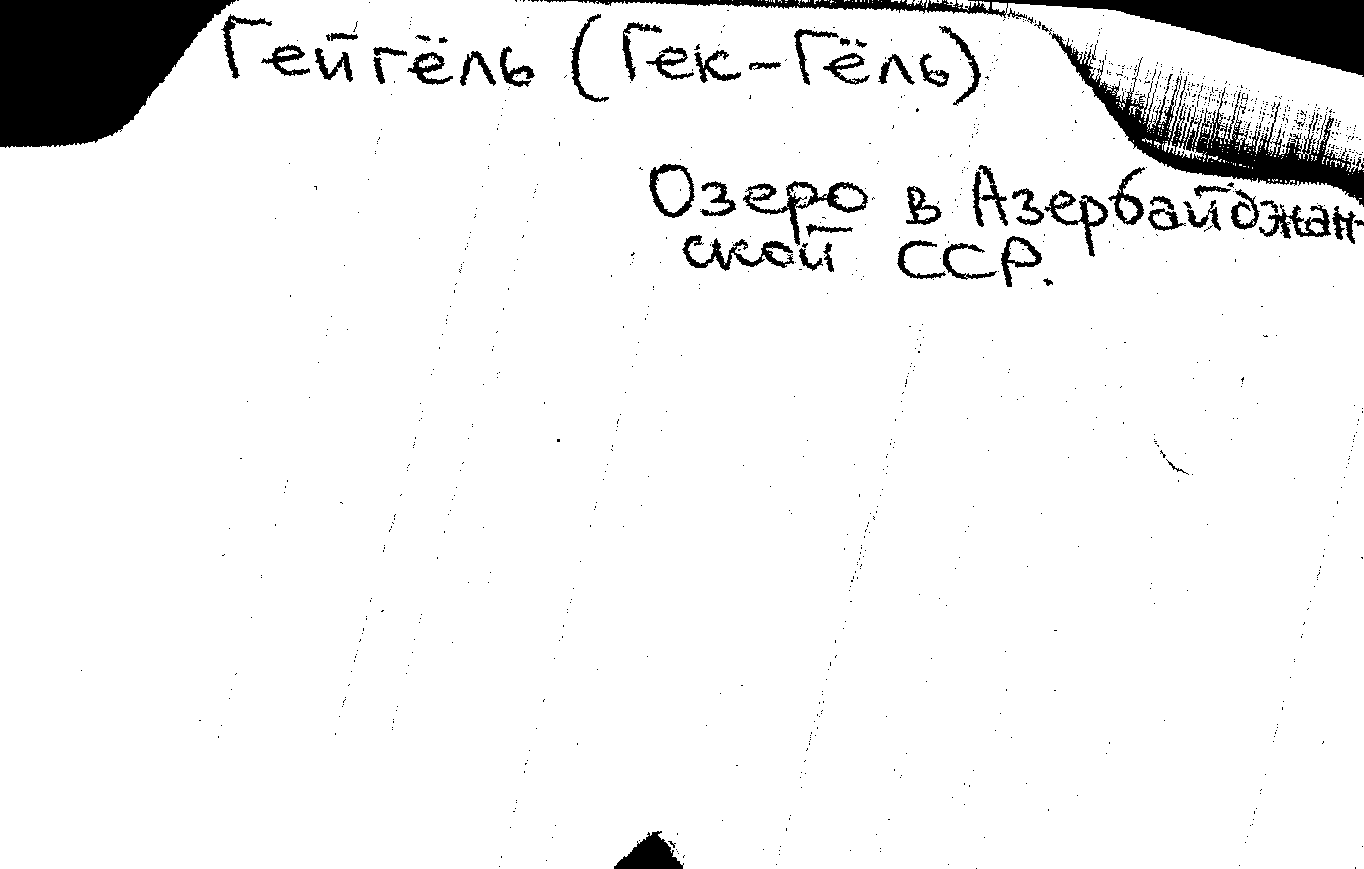 Гейгёль (Гек-Гёль)
Озеро в Азербайджан-
ской ССР.